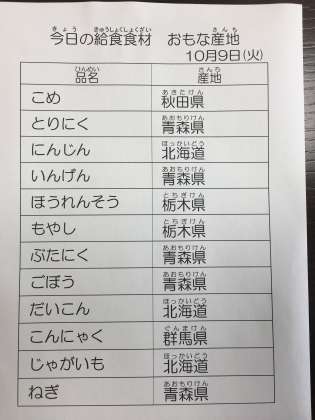 今日の給食食材 おもな産地
10月9日(火)
品名 産地
こめ 秋田県
とりにく 青森県
にんじん 北海道
いんげん 青森県
ほうれんそう 栃木県
もやし 栃木県
ぶたにく 青森県
ごぼう 青森県
だいこん 北海道
こんにゃく 群馬県
じゃがいも 北海道
ねぎ 青森県